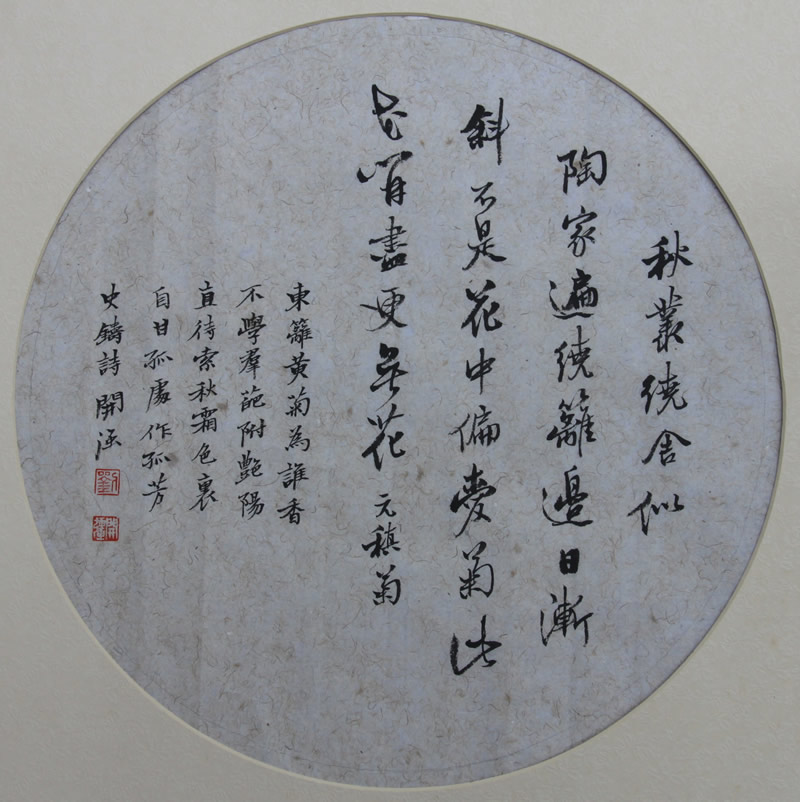 秋叢繞舍似
陶家遍繞籬邊日漸
斜不是花中偏愛菊此
花開盡更無花 元稹菊
東籬黄菊為誰香
不學羣葩附艷陽
直待索秋霜色裏
自甘孤處作孤芳
史鑄詩 開
劉